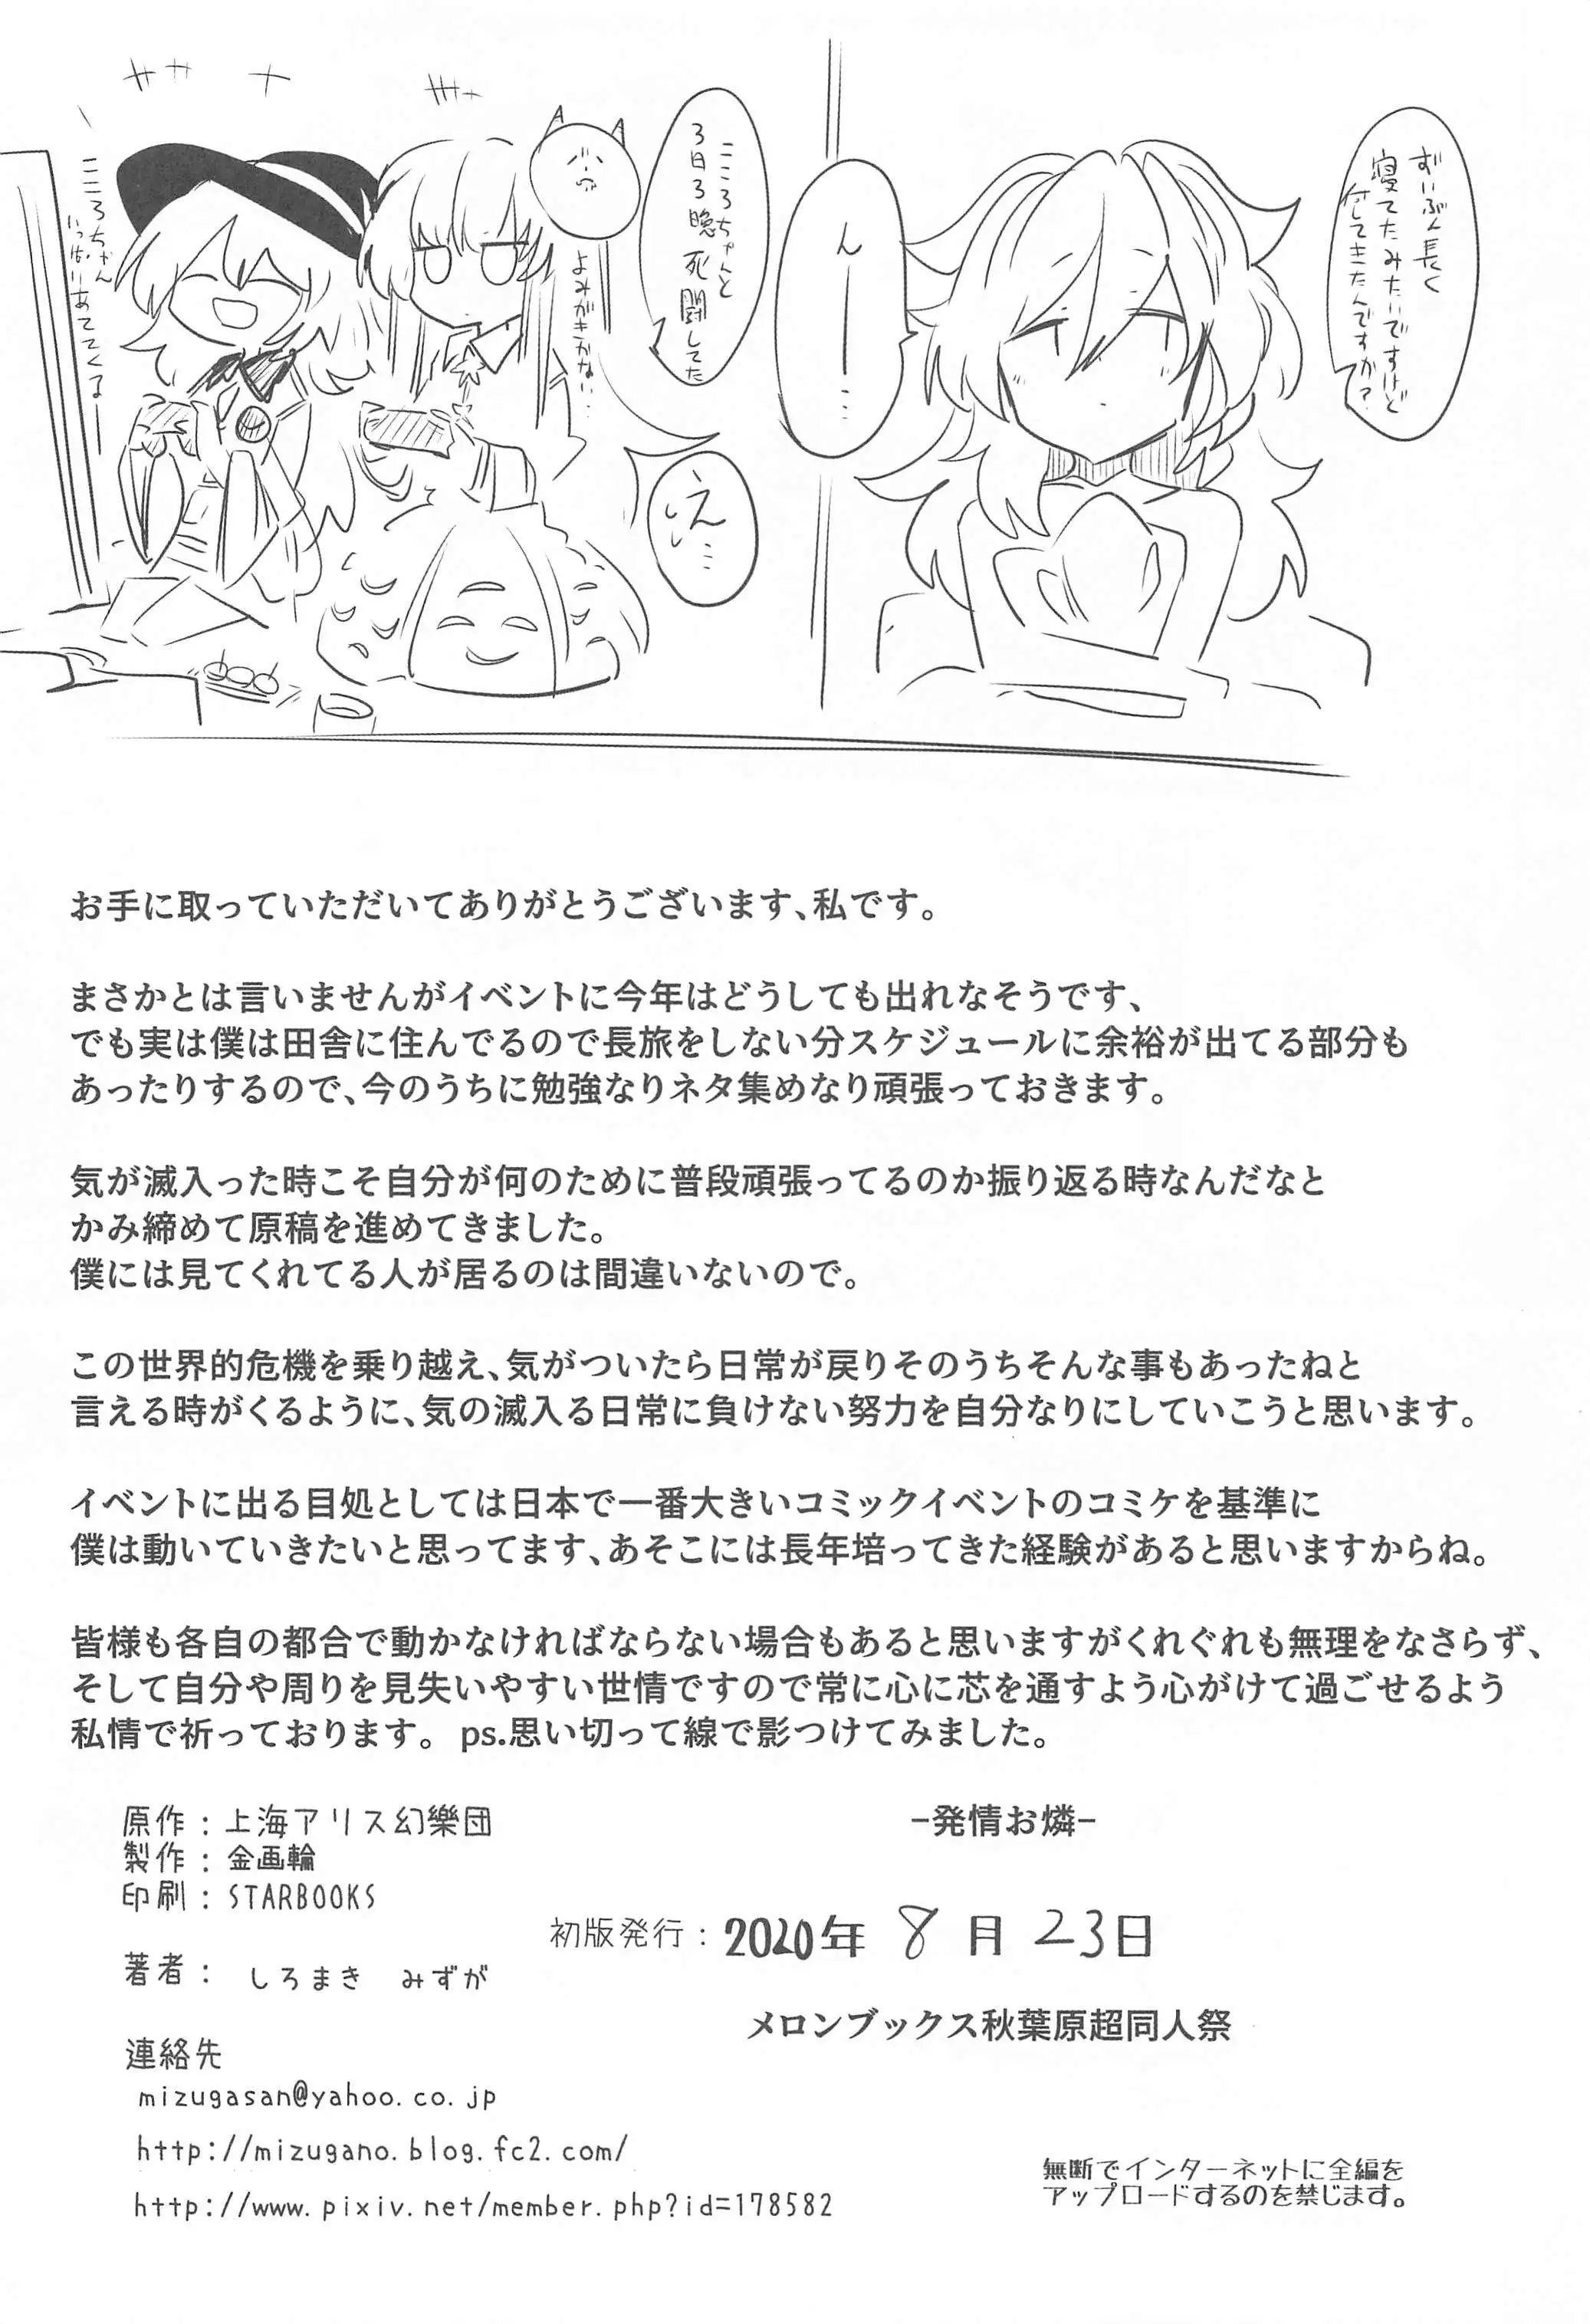 ずいぶん長く
寝てたみたいですけど
何してきたんですか?
んー…
こころちゃんと
3日3晩死闘してた
え…
よみがきかない…
こころちゃん
いっぱいあててくるー
お手に取っていただいてありがとうございます、私です。
まさかとは言いませんがイベントに今年はどうしても出れなそうです、
でも実は僕は田舎に住んでるので長旅をしない分スケジュールに余裕が出てる部分も
あったりするので、今のうちに勉強なりネタ集めなり頑張っておきます。
気が滅入った時こそ自分が何のために普段頑張ってるのか振り返る時なんだなと
かみ締めて原稿を進めてきました。
僕には見てくれてる人が居るのは間違いないので。
この世界的危機を乗り越え、気がついたら日常が戻りそのうちそんな事もあったねと
言える時がくるように、気の滅入る日常に負けない努力を自分なりにしていこうと思います。
イベントに出る目処としては日本で一番大きいコミックイベントのコミケを基準に
僕は動いていきたいと思ってます、あそこには長年培ってきた経験があると思いますからね。
皆様も各自の都合で動かなければならない場合もあると思いますがくれぐれも無理をなさらず、
そして自分や周りを見失いやすい世情ですので常に心に芯を通すよう心がけて過ごせるよう
私情で祈っております。ps.思い切って線で影つけてみました。
原作：上海アリス幻樂団
製作：金画輪
印刷：STARBOOKS
著者：しろまき みずが
連絡先
mizugasan@yahoo.co.jp
http://mizugano.blog.fc2.com/
http://www.pixiv.net/member.php?id=178582
−発情お燐−
初版発行：2020年 8月 23日
メロンブックス秋葉原超同人祭
無断でインターネットに全編を
アップロードするのを禁じます。